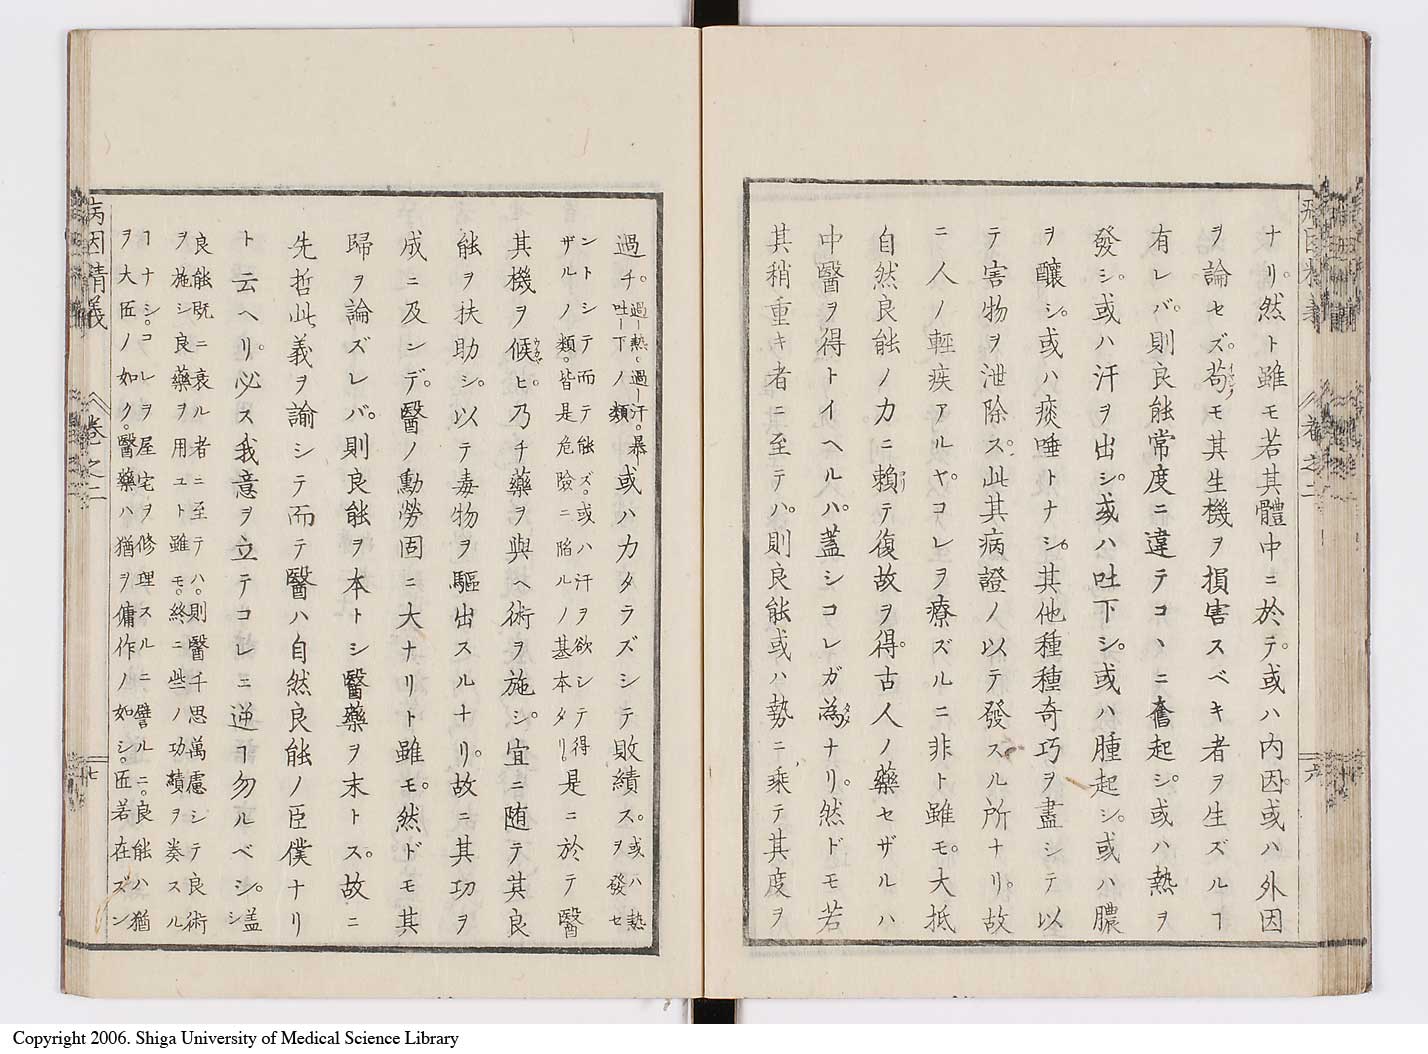 ナリ。然ト雖モ若其體中ニ於テ。或ハ内因。或ハ外因
ヲ論セズ。苟モ其生機ヲ損害スベキ者ヲ生ズルヿ
有レバ。則良能常度ニ違テコヽニ奮起シ。或ハ熱ヲ
發シ。或ハ汗ヲ出シ。或ハ吐下シ。或ハ腫起シ。或ハ膿
ヲ釀シ。或ハ痰唾トナシ。其他種種奇巧ヲ盡シテ以
テ害物ヲ泄除ス。此其病證ノ以テ發スル所ナリ。故
ニ人ノ輕疾アルヤ。コレヲ療ズルニ非ト雖モ。大抵
自然良能ノ力ニ賴テ復故ヲ得。古人ノ藥セザルハ
中醫ヲ得トイヘルハ。蓋シコレガ為ナリ。然ドモ若
其稍重キ者ニ至テハ。則良能或ハ勢ニ乘テ其度ヲ
過チ。過熱、過汗。暴吐下ノ類或ハ力タラズシテ敗績ス。或ハ熱ヲ發セ
ントシテ而テ能ズ。或ハ汗ヲ欲シテ得ザルノ類。皆是危險ニ陷ルノ基本タリ是ニ於テ醫
其機ヲ候ヒ。乃チ藥ヲ與ヘ術ヲ施シ。宜ニ随テ其良
能ヲ扶助シ。以テ毒物ヲ驅出スルナリ。故ニ其功ヲ
成ニ及ンデ。醫ノ勳勞固ニ大ナリト雖モ。然ドモ其
歸ヲ論ズレバ。則良能ヲ本トシ醫藥ヲ末トス。故ニ
先哲此義ヲ諭シテ而テ醫ハ自然良能ノ臣僕ナリ
ト云ヘリ。必ス我意ヲ立テコレニ逆ヿ勿ルベシ。蓋シ
良能既ニ衰ル者ニ至テハ。則醫千思萬慮シテ良術
ヲ施シ良藥ヲ用ユト雖モ。終ニ些ノ功績ヲ奏スル
ヿナシ。コレヲ屋宅ヲ修理スルニ譬ルニ。良能ハ猶
ヲ大匠ノ如ク。醫藥ハ猶ヲ傭作ノ如シ。匠若在ズン
病因精義 卷之二 七
Copyright 2006. Shiga University of Medical Science Library